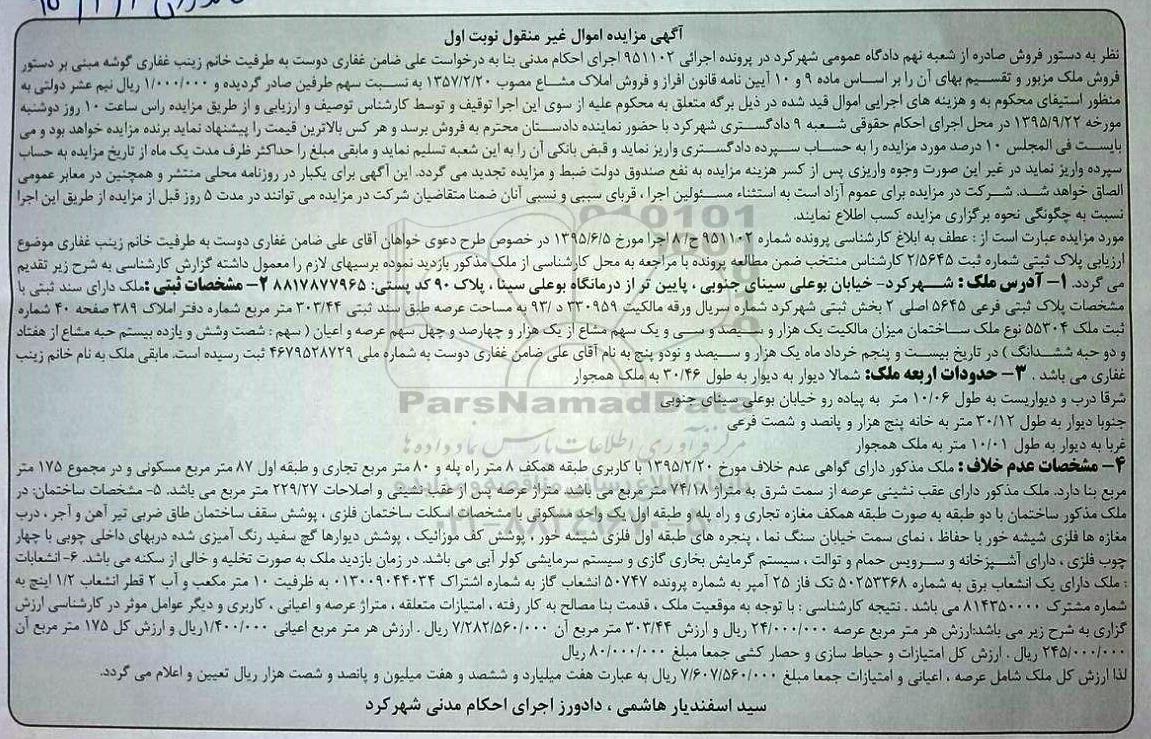 آگهی مزایده اموال غیر منقول نوبت اول
نظر به دستور فروش صادره از شعبه نهم دادگاه عمومی شهرکرد در پرونده اجرائی ۹۵۱۱۰۲ اجرای احکام مدنی بنا به درخواست علی ضامن غفاری دوست به طرفیت خانم زینب غفاری گوشه مبنی بر دستور
فروش ملک مزبور و تقسیم بهای آن را بر اساس ماده ۹ و ۱۰ آیین نامه قانون افراز و فروش املاک مشاع مصوب ۱۳۵۷/۲/۲۰ به نسبت سهم طرفین صادر گردیده و ۱/۰۰۰/۰۰۰ ریال نیم عشر دولتی به
منظور استیفای محکوم به و هزینه های اجرایی اموال قید شده در ذیل برگه متعلق به محکوم علیه از سوی این اجرا توقیف و توسط کارشناس توصیف و ارزیابی و از طریق مزایده راس ساعت ۱۰ روز دوشنبه
مورخه ۱۳۹۵/۹/۲۲ در محل اجرای احکام حقوقی شعبه ۹ دادگستری شهرکرد با حضور نماینده دادستان محترم به فروش برسد و هر کس بالاترین قیمت را پیشنهاد نماید برنده مزایده خواهد بود و می
بایست فی المجلس ۱۰ درصد مورد مزایده را به حساب سپرده دادگستری واریز نماید و قبض بانکی آن را به این شعبه تسلیم نماید و مابقی مبلغ را حداکثر ظرف مدت یک ماه از تاریخ مزایده به حساب
سپرده واریز نماید در غیر این صورت وجوه واریزی پس از کسر هزینه مزایده به نفع صندوق دولت ضبط و مزایده تجدید می گردد. این آگهی برای یکبار در روزنامه محلی منتشر و همچنین در معابر عمومی
الصاق خواهد شد. شرکت در مزایده برای عموم آزاد است به استثناء مسئولین اجرا ، قربای سببی و نسبی آنان ضمنا متقاضیان شرکت در مزایده می توانند در مدت ۵ روز قبل از مزایده از طریق این اجرا
نسبت به چگونگی نحوه برگزاری مزایده کسب اطلاع نمایند.
مورد مزایده عبارت است از : عطف به ابلاغ کارشناسی پرونده شماره ۹۵۱۱۰۲ ح/۸ اجرا مورخ ۱۳۹۵/۶/۵ در خصوص طرح دعوی خواهان آقای علی ضامن غفاری دوست به طرفیت خانم زینب غفاری موضوع
ارزیابی پلاک ثبتی شماره ثبت ۲/۵۶۴۵ کارشناس منتخب ضمن مطالعه پرونده با مراجعه به محل کارشناسی از ملک مذکور بازدید نموده برسیهای لازم را معمول داشته گزارش کارشناسی به شرح زیر تقدیم
می گردد. ۱- آدرس ملک : شهرکرد- خیابان بوعلی سینای جنوبی ، پایین تر از درمانگاه بوعلی سینا ، پلاک ۹۰ کد پستی: ۸۸۱۷۸۷۷۹۶۵ ۲- مشخصات ثبتی :ملک دارای سند ثبتی با
مشخصات پلاک ثبتی فرعی ۵۶۴۵ اصلی ۲ بخش ثبتی شهرکرد شماره سریال ورقه مالکیت ۳۳۰۹۵۹ د /۹۳ به مساحت عرصه طبق سند ثبتی ۳۰۳/۴۴ متر مربع شماره دفتر املاک ۳۸۹ صفحه ۴۰ شماره
ثبت ملک ۵۵۳۰۴ نوع ملک ساختمان میزان مالکیت یک هزار و سیصد و سی و یک سهم مشاع از یک هزار و چهارصد و چهل سهم عرصه و اعیان ( سهم : شصت وشش و یازده بیستم حبه مشاع از هفتاد
و دو حبه ششدانگ ) در تاریخ بیست و پنجم خرداد ماه یک هزار و سیصد و نودو پنج به نام آقای علی ضامن غفاری دوست به شماره ملی ۴۶۷۹۵۲۸۷۲۹ ثبت رسیده است. مابقی ملک به نام خانم زینب
غفاری می باشد . ۳- حدودات اربعه ملک: شمالا دیوار به دیوار به طول ۳۰/۴۶ به ملک همجوار
شرقا درب و دیواریست به طول ۱۰/۰۶ متر به پیاده رو خیابان بوعلی سینای جنوبی
جنوبا دیوار به طول ۳۰/۱۲ متر به خانه پنج هزار و پانصد و شصت فرعی
غربا به دیوار به طول ۱۰/۰۱ متر به ملک همجوار
۴- مشخصات عدم خلاف : ملک مذکور دارای گواهی عدم خلاف مورخ ۱۳۹۵/۲/۲۰ با کاربری طبقه همکف ۸ متر راه پله و ۸۰ متر مربع تجاری و طبقه اول ۸۷ متر مربع مسکونی و در مجموع ۱۷۵ متر
مربع بنا دارد. ملک مذکور دارای عقب نشینی عرصه از سمت شرق به متراژ ۷۴/۱۸ متر مربع می باشد متراژ عرصه پس از عقب نشینی و اصلاحات ۲۲۹/۲۷ متر مربع می باشد. ۵- مشخصات ساختمان: در
ملک مذکور ساختمان با دو طبقه به صورت طبقه همکف مغازه تجاری و راه پله و طبقه اول یک واحد مسکونی با مشخصات اسکلت ساختمان فلزی ، پوشش سقف ساختمان طاق ضربی تیر آهن و آجر ، درب
مغازه ها فلزی شیشه خور با حفاظ ، نمای سمت خیابان سنگ نما ، پنجره های طبقه اول فلزی شیشه خور ، پوشش کف موزائیک ، پوشش دیوارها گچ سفید رنگ آمیزی شده دربهای داخلی چوبی با چهار
چوب فلزی ، دارای آشپزخانه و سرویس حمام و توالت ، سیستم گرمایش بخاری گازی و سیستم سرمایشی کولر آبی می باشد. در زمان بازدید ملک به صورت تخلیه و خالی از سکنه می باشد. ۶- انشعابات
: ملک دارای یک انشعاب برق به شماره ۵۰۲۵۳۳۶۸ تک فاز ۲۵ آمپر به شماره پرونده ۵۰۷۴۷ انشعاب گاز به شماره اشتراک ۰۱۳۰۰۹۰۴۴۰۳۴ به ظرفیت ۱۰ متر مکعب و آب ۲ قطر انشعاب ۱/۲ اینچ به
شماره مشترک ۸۱۴۳۵۰۰۰۰ می باشد . نتیجه کارشناسی : با توجه به موقعیت ملک ، قدمت بنا مصالح به کار رفته ، امتیازات متعلقه ، متراژ عرصه و اعیانی ، کاربری و دیگر عوامل موثر در کارشناسی ارزش
گزاری به شرح زیر می باشد:ارزش هر متر مربع عرصه ۲۴/۰۰۰/۰۰۰ ریال و ارزش ۳۰۳/۴۴ متر مربع آن ۷/۲۸۲/۵۶۰/۰۰۰ ریال . ارزش هر متر مربع اعیانی ۱/۴۰۰/۰۰۰ریال و ارزش کل ۱۷۵ متر مربع آن
۲۴۵/۰۰۰/۰۰۰ ریال . ارزش کل امتیازات و حیاط سازی و حصار کشی جمعا مبلغ ۸۰/۰۰۰/۰۰۰ ریال
لذا ارزش کل ملک شامل عرصه ، اعیانی و امتیازات جمعا مبلغ ۷/۶۰۷/۵۶۰/۰۰۰ ریال به عبارت هفت میلیارد و ششصد و هفت میلیون و پانصد و شصت هزار ریال تعیین و اعلام می گردد.
سید اسفندیار هاشمی ، دادورز اجرای احکام مدنی شهرکرد
ParsNamadData
مرکز فرآوری اطلاعات پارس نماد داده ها